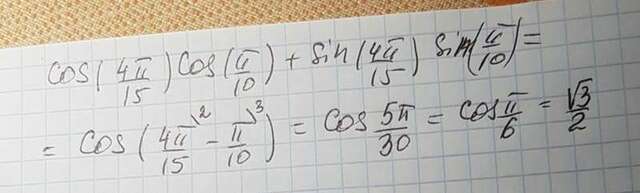 cos(4π/15)cos(π/10) + sin(4π/15) sin(π/10) =
= cos(4π/15 \2 - π/10 \3) = cos 5π/30 = cos π/6 = √3/2